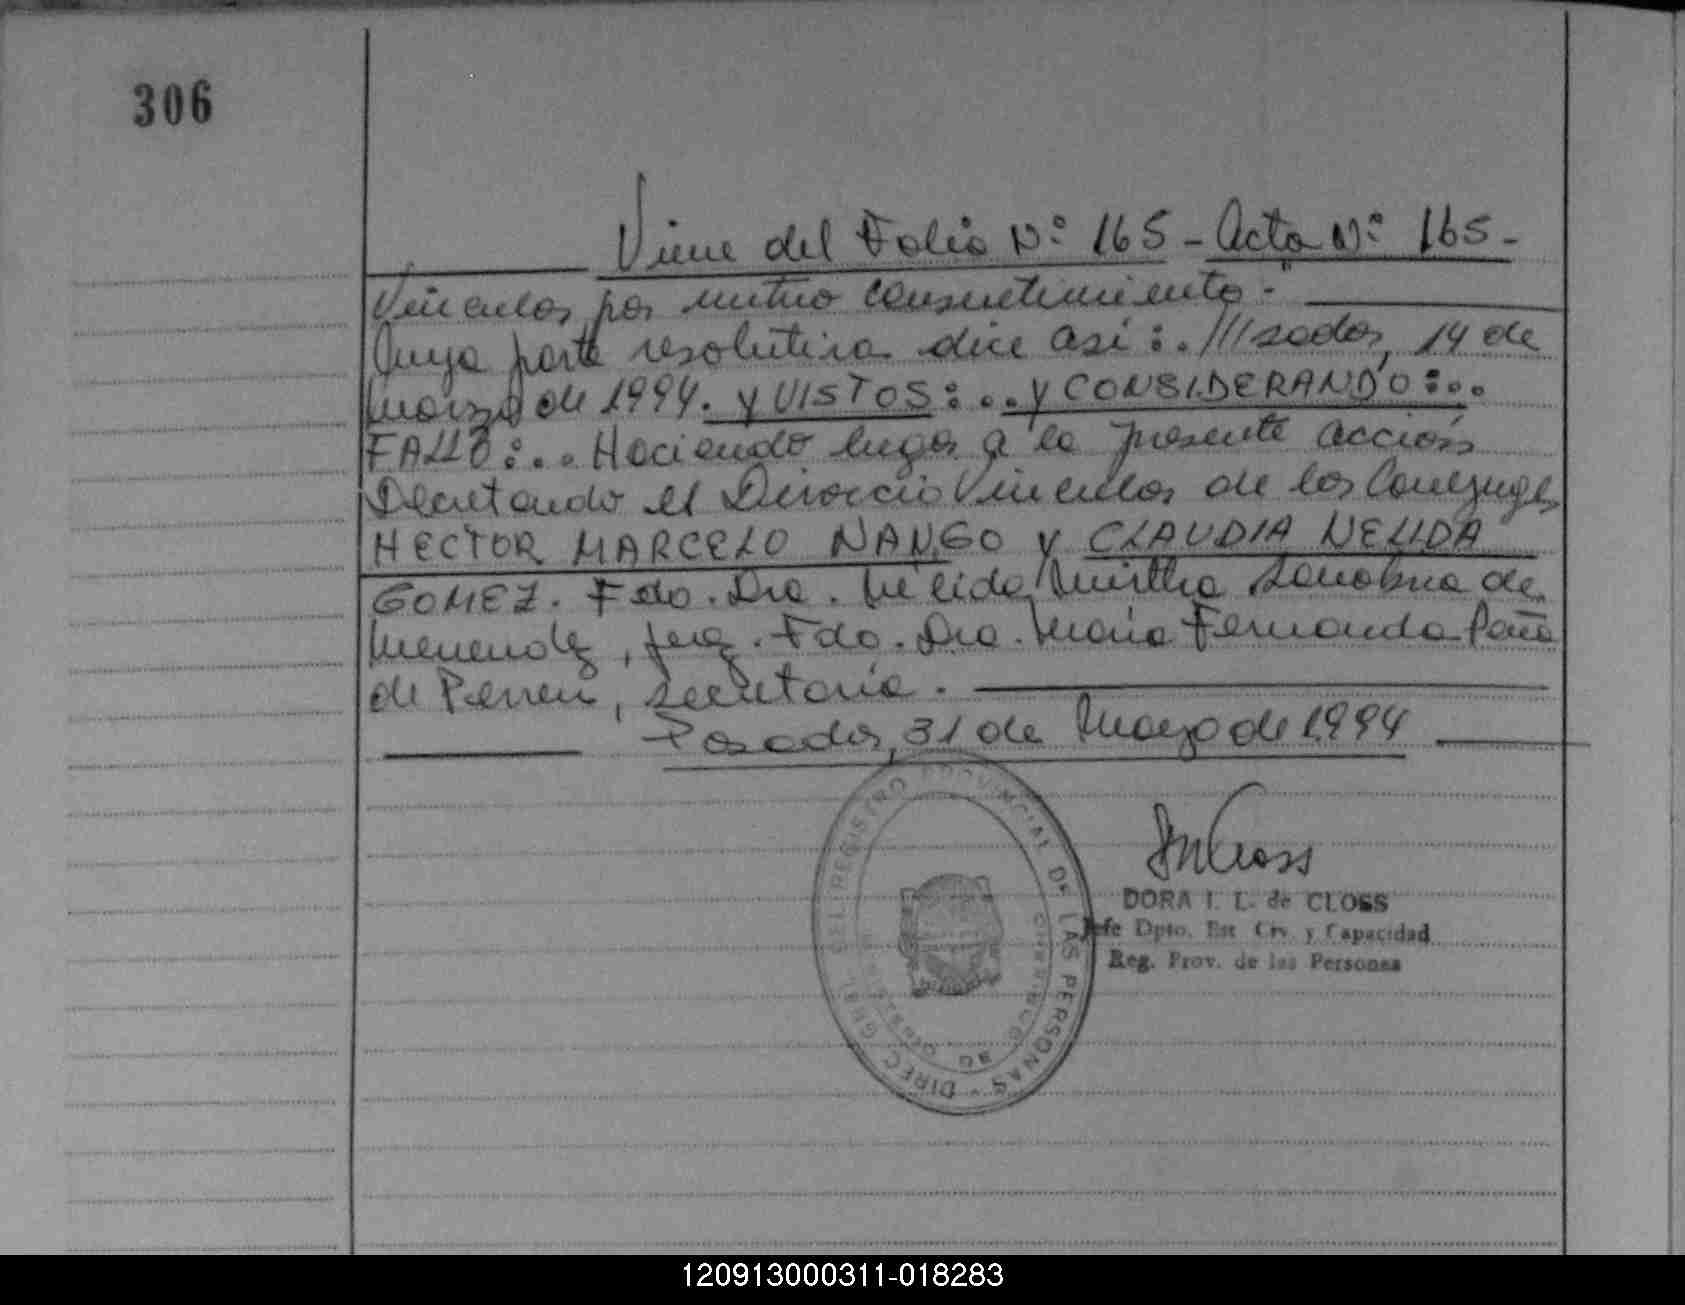 306
Viene del Folio Nº 165 - Acta Nº 165 -
Vincular por mutuo consentimiento - "
Cuya parte resolutiva dice así: ///sadas, 14 de
Marzo de 1994. y VISTOS:.. y CONSIDERANDO:..
FALLO:... Haciendo lugar a la presente acción
Decretando el Divorcio Vincular de los Conyuges
HECTOR MARCELO NANGO y CLAUDIA NELIDA
GOMEZ. Fdo. Dra. Mirtha de
Menendez, Juez. Fdo. Dra. María Fernanda
de , Secretaria.
Posadas, 31 de Marzo de 1994
DIREC. GRAL. DEL REGISTRO PROVINCIAL DE LAS PERSONAS
DORA I. L. de CLOSS
Jefe Dpto. Est Civ. y Capacidad
Reg. Prov. de las Personas
120913000311-018283